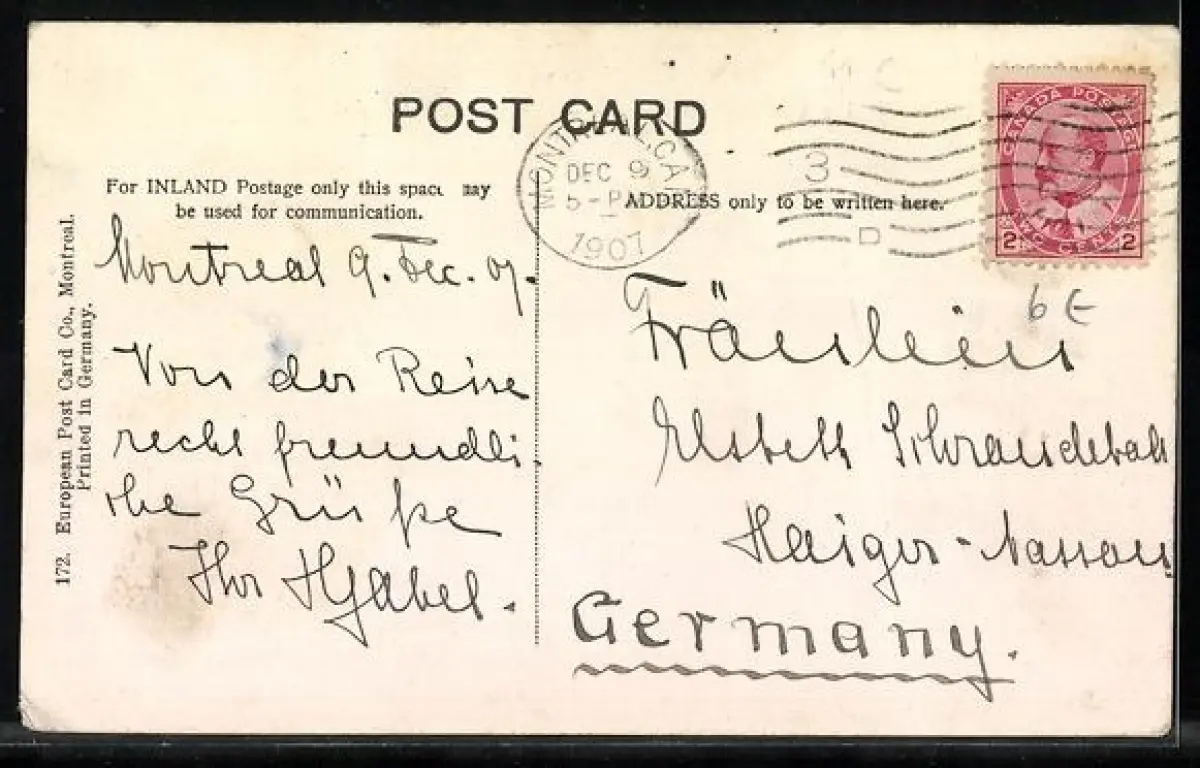 POST CARD
For INLAND Postage only this space may
be used for communication.
ADDRESS only to be written here.
MONTREAL, CAN
DEC 9
5-P
1907
3
D
CANADA POSTAGE
2 TWO CENTS 2
6 E
172. European Post Card Co., Montreal.
Printed in Germany.
Montreal 9. Dec. 07.
Von der Reise
recht freundli
che Grüße
Ihr
Fräulein
Elsbeth
Haiger-Nassau
Germany.